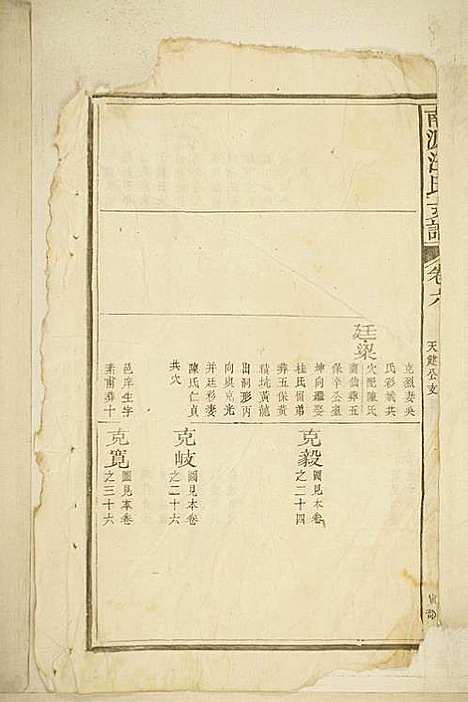 南源汪氏支譜
卷六
天健公支
克烈妻吳
氏彩娥共
穴配陳氏
壽仙葬五
保辛公臺
坤向繼娶
桂氏侑弟
葬五保黃
積坑黃龍
出洞形丙
向與克光
并廷彩妻
陳氏仁貞
共穴
廷粲
邑庠生字
葬十
克毅
圖見本卷
之二十四
克岐
圖見本卷
之二十六
克寬
圖見本卷
之三十六